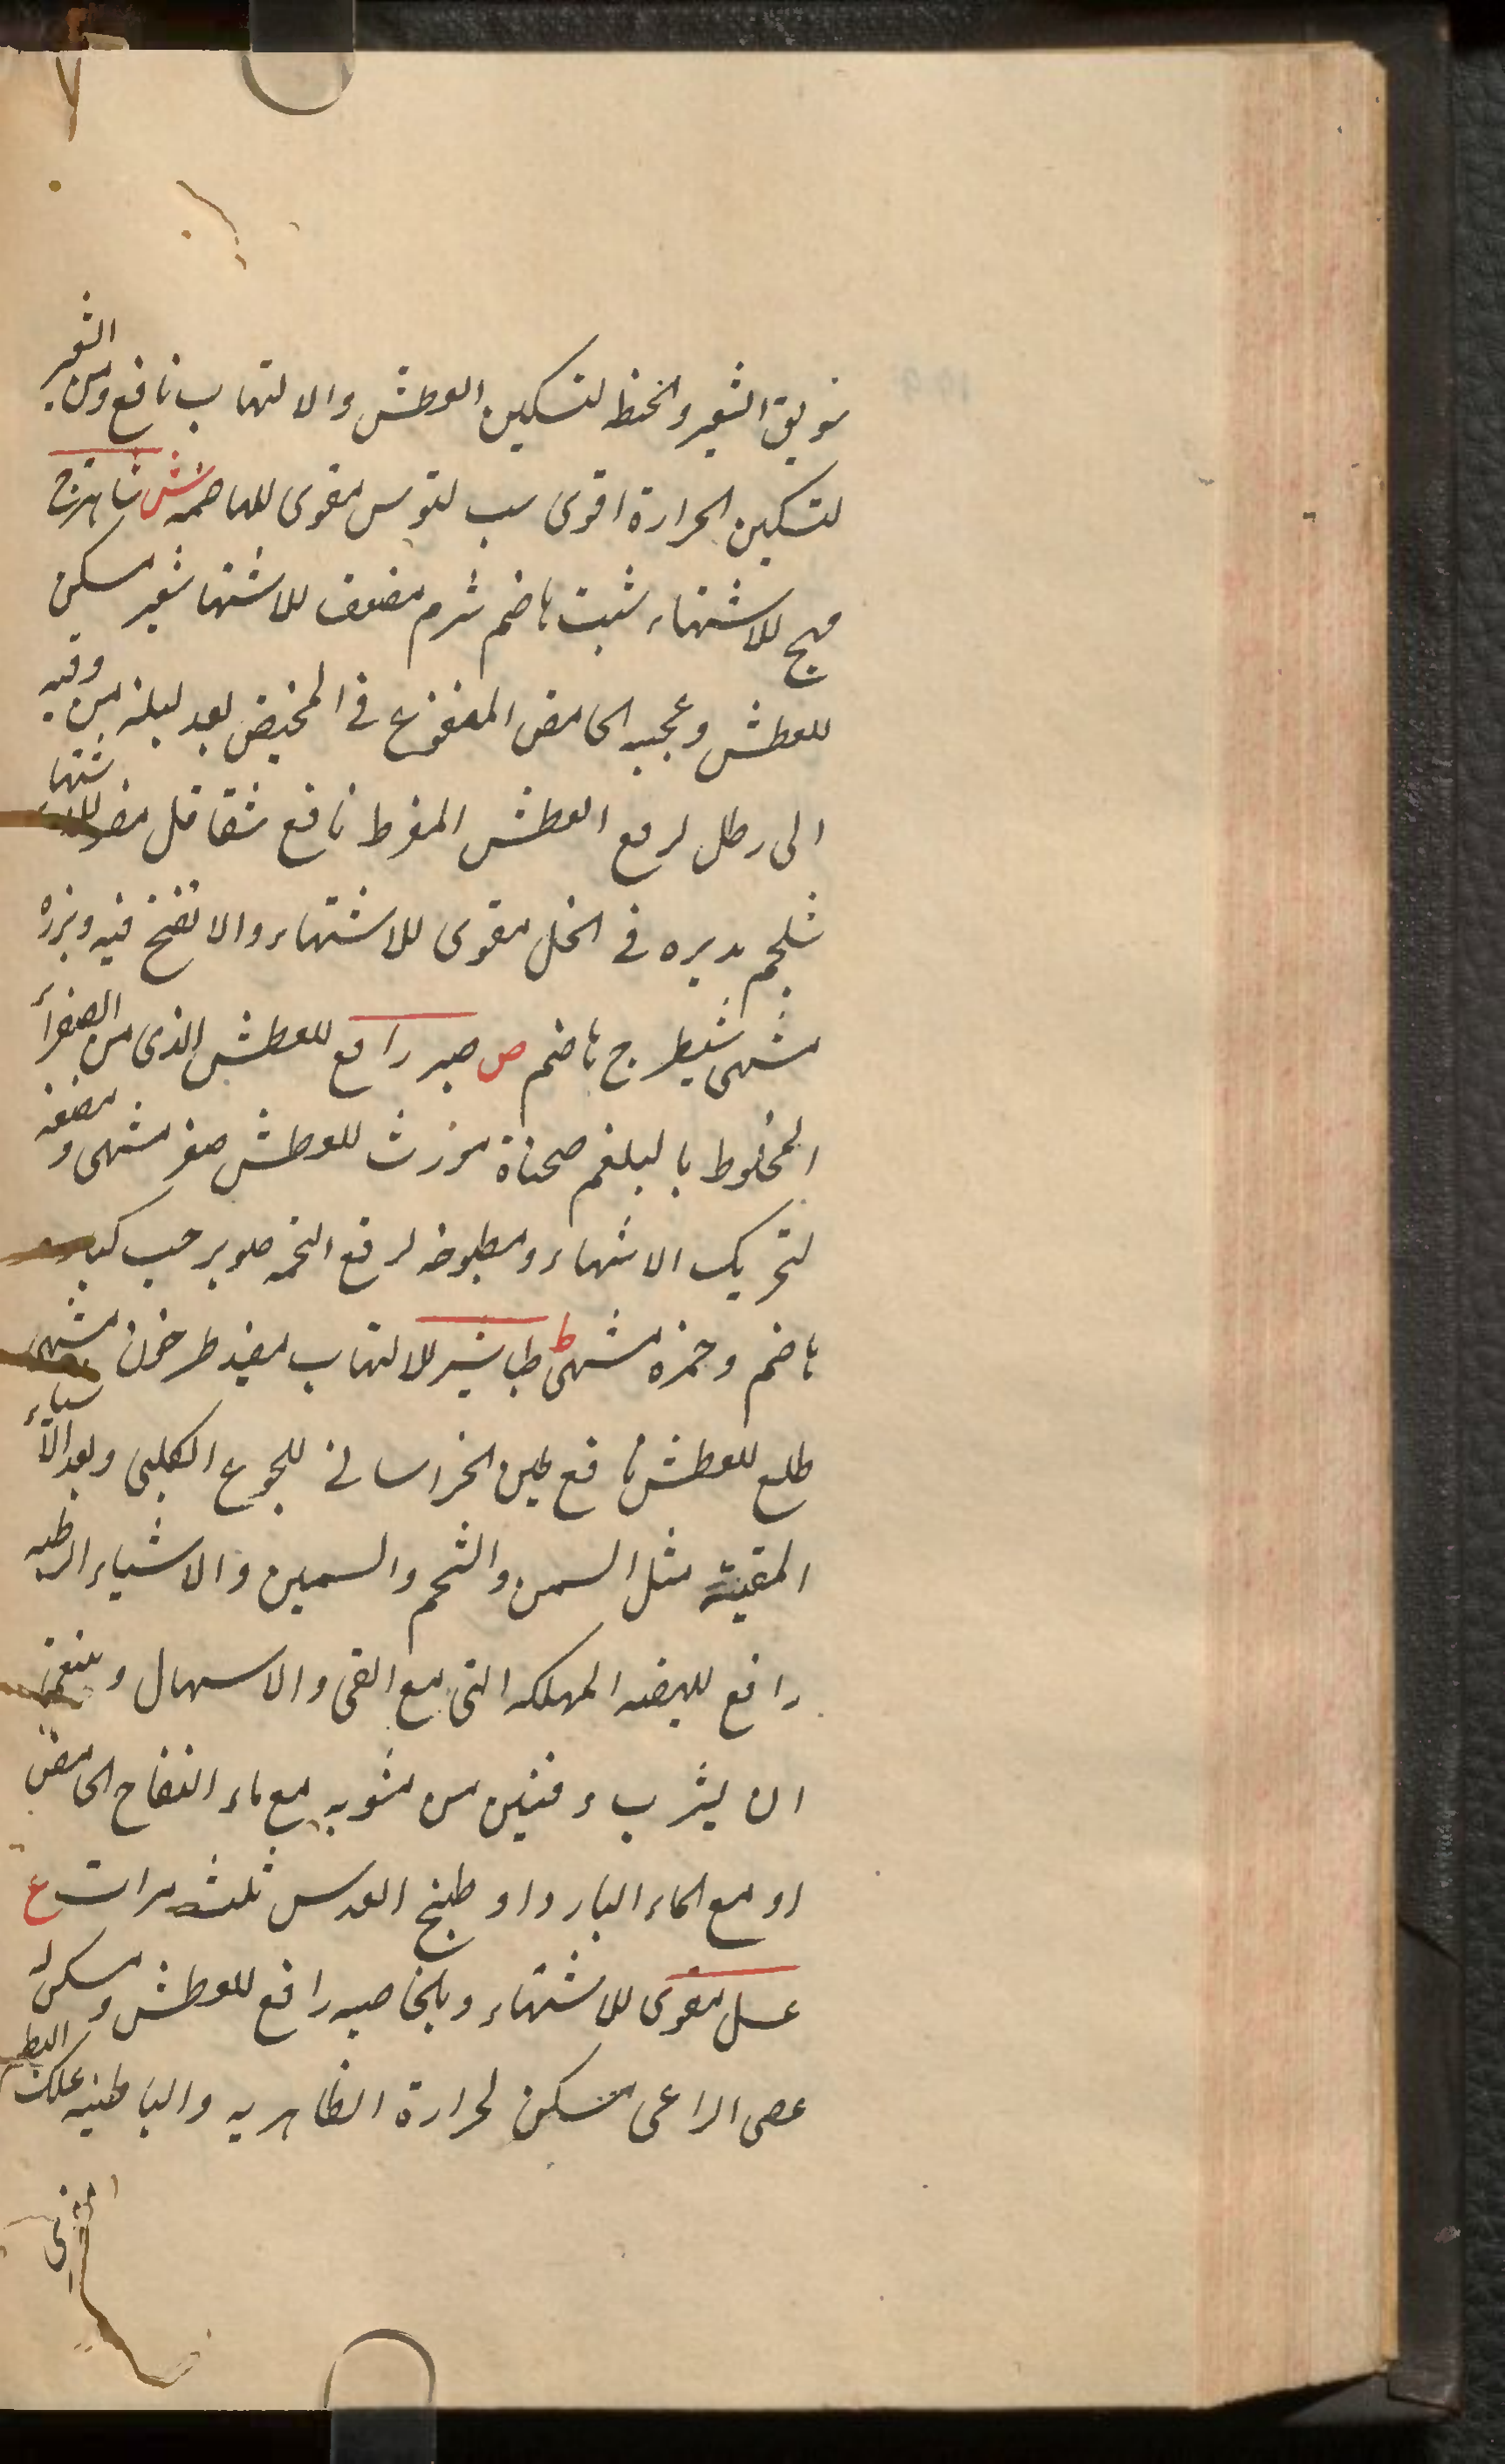 ٧
سويق الشعير والحنطه لتسكين العطش والالتهاب نافع ومن الشعير
لتسكين الحرارة اقوى سيب لتوس مقوى للهاضمه ش شاهترج
مهيج للاشتهاء شبت هاضم شرم مضعف للاشتها شعير مسكن
للعطش وعجينه الحامض المنقوع في المخيض بعد ليلة من وقيه
الى رطل لرفع العطش المفرط نافع شقاقل مضر للاشتها
شلجم مدبره في الخل مقوى للاشتهاء والا نفخ فيه وبزره
مشهى شيطرج هاضم ص صبر رافع للعطش الذى من الصفرأ
المخلوط بالبلغم صحناة مورث للعطش صعتر مشهى و مضغه
لتحريك الاشتهاء ومطبوخه لرفع التخمه صنوبر حب كبار
هاضم وخمزه مشهى ط طباشير للالتهاب مفيد طرخون مشهى
طلع للعطش نافع طين الخراسانى للجوع الكلبى وبعد الأشياء
المقيئة مثل السمن والشحم والسمين والاشياء الرطبه
رافع للهيضه المهلكه التى مع القى والاسهال وينبغى
ان يشرب وقيتين من مشويه مع ماء التفاح الحامض
او مع الماء البارد او طبخ العدس ثلث مرات ع
عسل مقوى للاشتهاء وبالخاصيه رافع للعطش ومسكن له
عصى الراعى مسكن لحرارة الظاهريه والباطنيه علك البطم